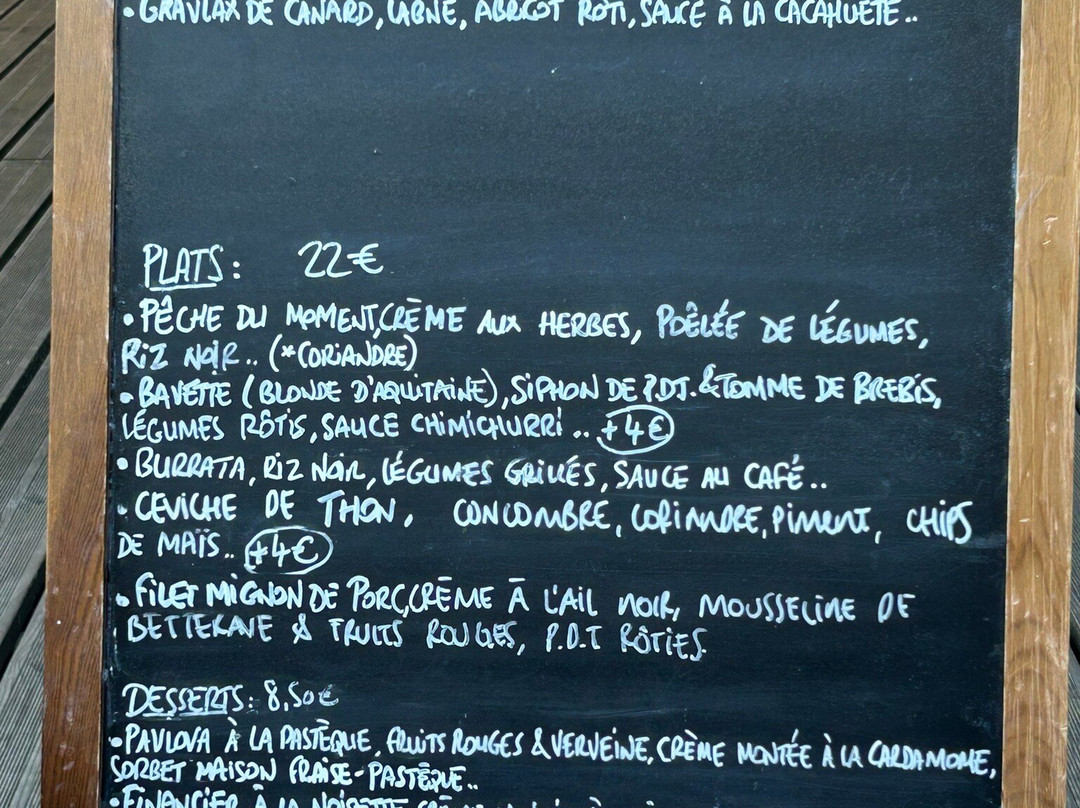 • GRAVLAX DE CANARD, LABNE, ABRICOT RÔTI, SAUCE À LA CACAHUETE..
PLATS : 22€
• PÊCHE DU MOMENT, CRÈME AUX HERBES, POÊLÉE DE LÉGUMES,
RIZ NOIR.. (*CORIANDRE)
• BAVETTE (BLONDE D'AQUITAINE), SIPHON DE P.D.T. & TOMME DE BREBIS,
LÉGUMES RÔTIS, SAUCE CHIMICHURRI .. +4€
• BURRATA, RIZ NOIR, LÉGUMES GRILLÉS, SAUCE AU CAFÉ..
• CEVICHE DE THON, CONCOMBRE, CORIANDRE, PIMENT, CHIPS
DE MAÏS.. +4€
• FILET MIGNON DE PORC, CRÈME À L'AIL NOIR, MOUSSELINE DE
BETTERAVE & FRUITS ROUGES, P.D.T RÔTIES.
DESSERTS : 8,50€
• PAVLOVA À LA PASTÈQUE, FRUITS ROUGES & VERVEINE, CRÈME MONTÉE À LA CARDAMOME,
SORBET MAISON FRAISE-PASTÈQUE..
• FINANCIER À LA NOISETTE